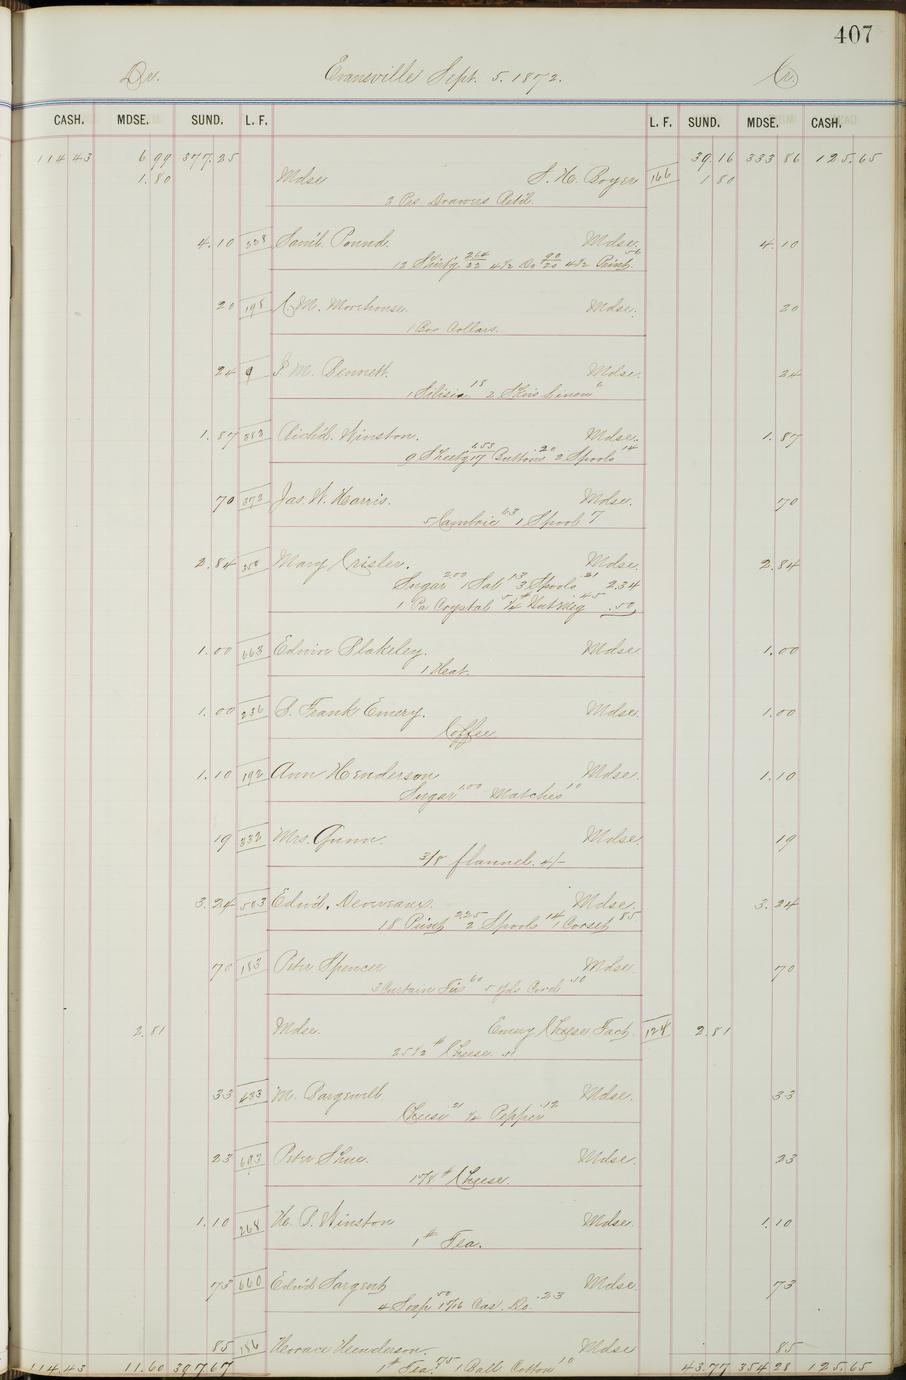 407
Dr. Evansville Sept. 5. 1872. Cr.
CASH. MDSE. SUND. L. F. L. F. SUND. MDSE. CASH.
114 43 6 99 377.25 39.16 333 86 125.65
1.80 Mdse S. H. Boyer 166 1 80
2 Prs. Drawers Retd.
4.10 228 Saml. Pound. Mdse. 4.10
12 Shirtg 264/22 4 1/2 Do 90/20 4 1/2 Print 56
20 198 C. M. Morehouse. Mdse. 20
1 Box Collars.
24 9 J. M. Bennett. Mdse. 24
1 Silisia 18 2 Skeins Linen 6
1.87 382 Richd. Winston. Mdse. 1.87
9 Sheetg 17 1.53 Buttons 20 2 Spools 14
70 372 Jas. W. Harris. Mdse. 70
5 Cambric 63 1 Spool 7
2.84 350 Mary Crisler. Mdse. 2.84
Sugar 2.00 1 Sal 13 3 Spools 21 2.34
1 Pa Crystal 5 1/4 # Nutmeg .45 .50
1.00 663 Edwin Blakeley. Mdse 1.00
1 Heat.
1.00 236 S. Frank Emery. Mdse. 1.00
Coffee
1.10 192 Ann Henderson Mdse. 1.10
Sugar 1.00 Matches 10
19 332 Mrs. Gunn. Mdse. 19
3/8 flannel. 4/-
3.24 503 Edwd. Devereaux. Mdse. 3.24
18 Print 2.25 2 Spools 14 1 Corset 85
70 183 Peter Spencer Mdse. 70
3 Curtain Fix 60 5 yds Cord .10
2.81 Mdse. Emery Cheese Fact. 124 2.81
25 1/2 # Cheese. 11
33 683 M. Mdse. 33
Cheese .21 1/4 Pepper .12
23 693 Peter Mdse. 23
1 7/8 # Cheese.
1.10 268 H. P. Winston Mdse. 1.10
1 # Tea.
73 660 Edwd Sargent Mdse. 73
4 Soap 50 1 9/16 Cas. Do. .23
85 186 Horace Henderson. Mdse 85
1 # Tea. 75 1 Ball Cotton 10
114.43 11.60 397.67 43.77 354 28 125.65